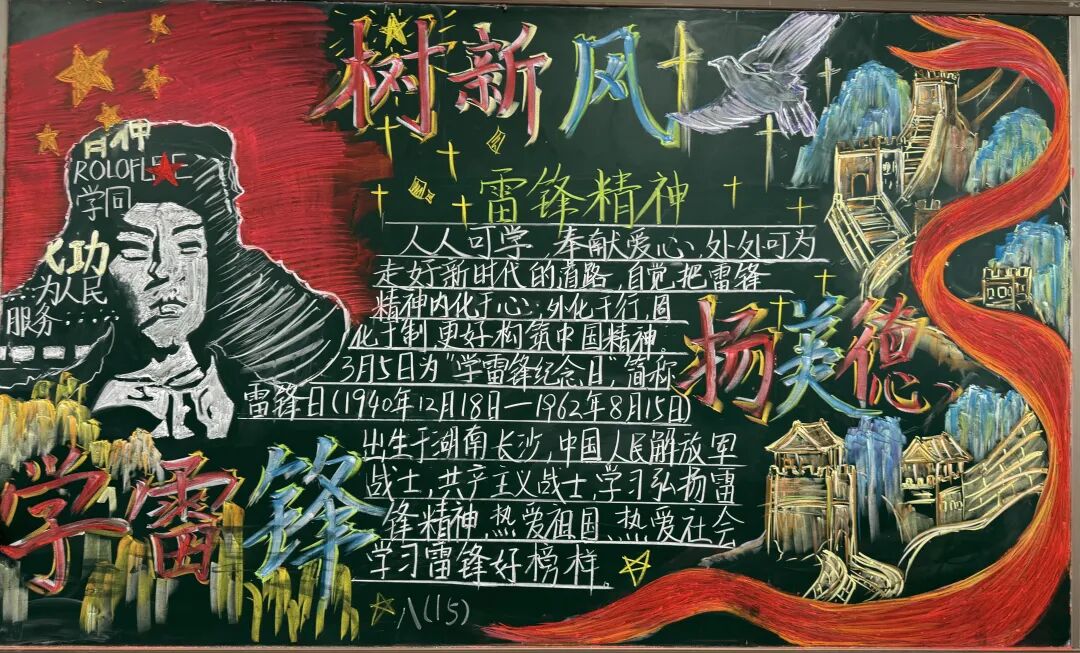 树新风
精神
ROLOFLEE
学同
成功
为人民
服务
雷锋精神
人人可学 奉献爱心,处处可为
走好新时代的道路,自觉把雷锋
精神内化于心;外化于行,固
化于制 更好构筑中国精神。
3月5日为“学雷锋纪念日”,简称
雷锋日(1940年12月18日—1962年8月15日)
出生于湖南长沙,中国人民解放军
战士,共产主义战士,学习弘扬雷
锋精神,热爱祖国、热爱社会
学习雷锋好榜样。
扬美德
学雷锋
八(15)